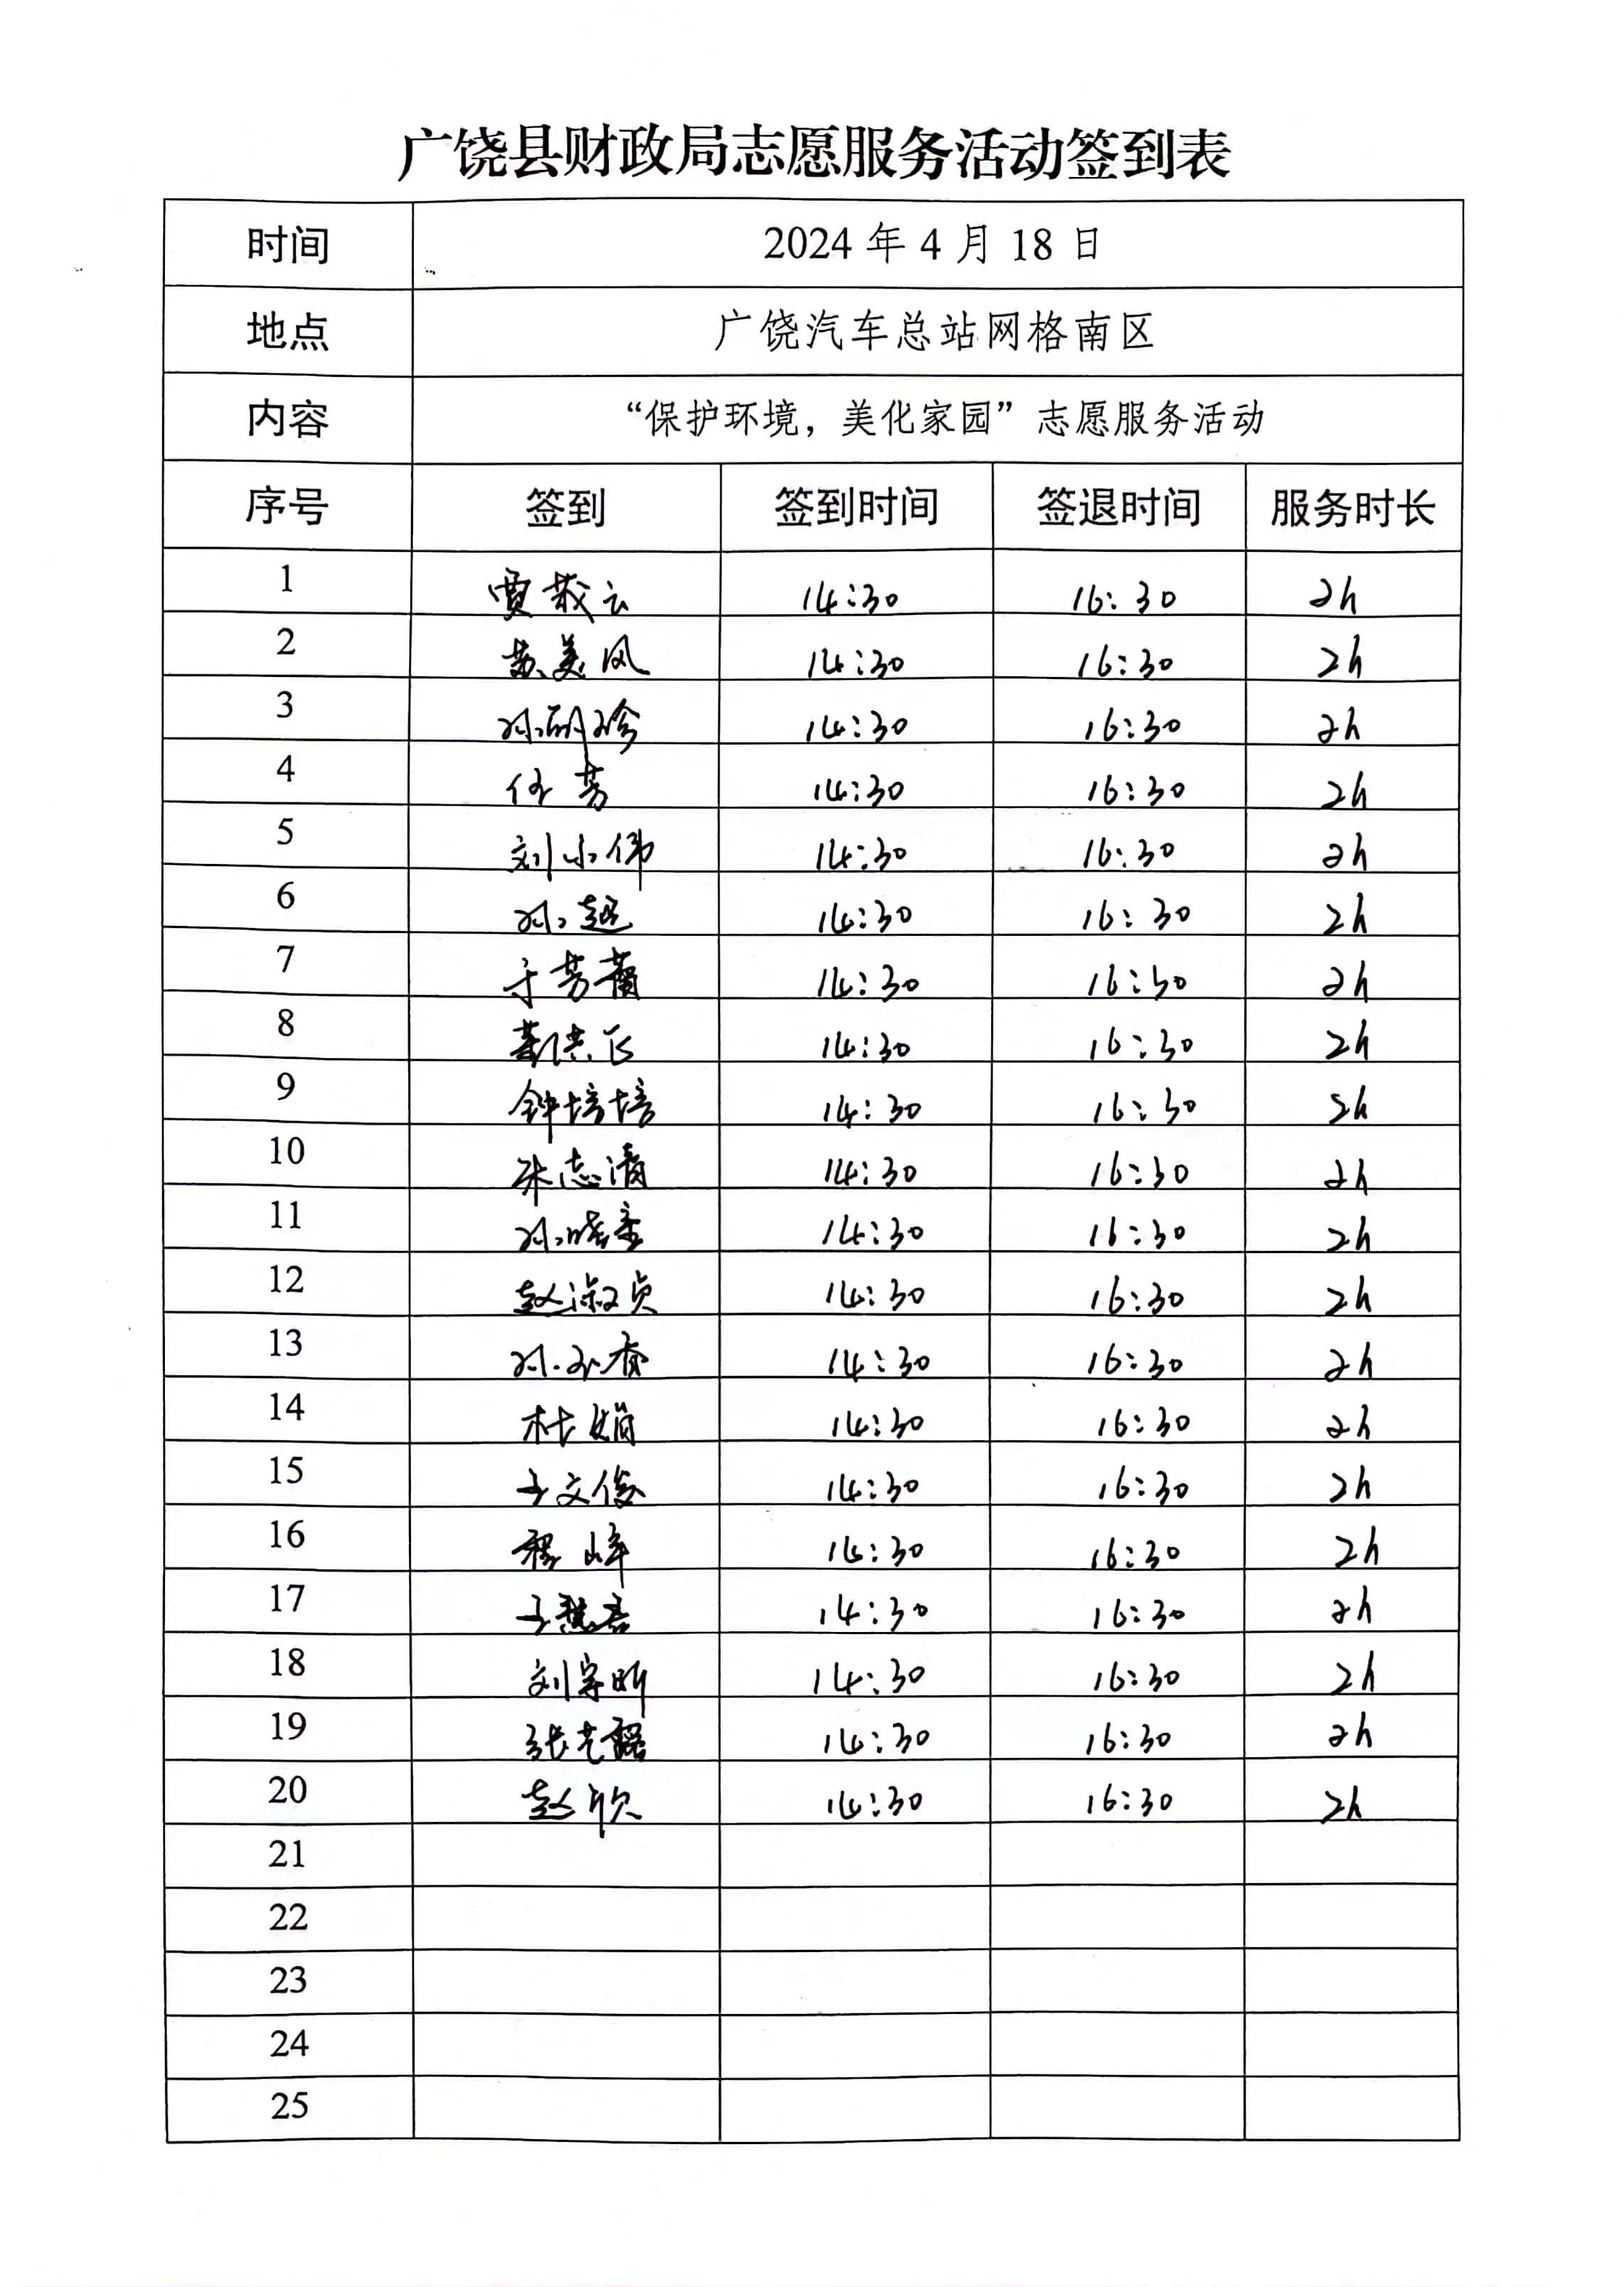 广饶县财政局志愿服务活动签到表
时间 2024 年 4 月 18 日
地点 广饶汽车总站网格南区
内容 “保护环境，美化家园”志愿服务活动
序号 签到 签到时间 签退时间 服务时长
1 贾云 14:30 16:30 2h
2 苏美凤 14:30 16:30 2h
3 孙丽珍 14:30 16:30 2h
4 任芳 14:30 16:30 2h
5 刘小伟 14:30 16:30 2h
6 孙超 14:30 16:30 2h
7 于芳蕾 14:30 16:30 2h
8 14:30 16:30 2h
9 钟培培 14:30 16:30 2h
10 朱志清 14:30 16:30 2h
11 孙晓 14:30 16:30 2h
12 赵淑贞 14:30 16:30 2h
13 孙春 14:30 16:30 2h
14 杜娟 14:30 16:30 2h
15 文俊 14:30 16:30 2h
16 程峰 14:30 16:30 2h
17 14:30 16:30 2h
18 刘宗昕 14:30 16:30 2h
19 张艺 14:30 16:30 2h
20 赵欣 14:30 16:30 2h
21
22
23
24
25